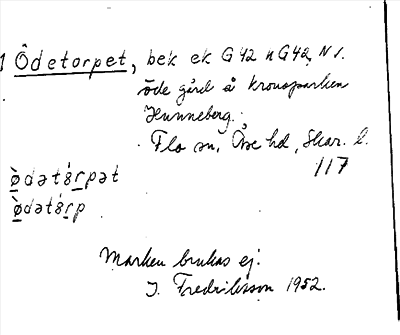 1 Ödetorpet, bek ek G42 n G42, N1.
öde gård å kronoparken
Hunneberg.
Flo sn, Åse hd, Skar. l.
117
ø̀dətórpət
ø̀dətórp
Marken brukas ej.
J. Fredriksson 1952.